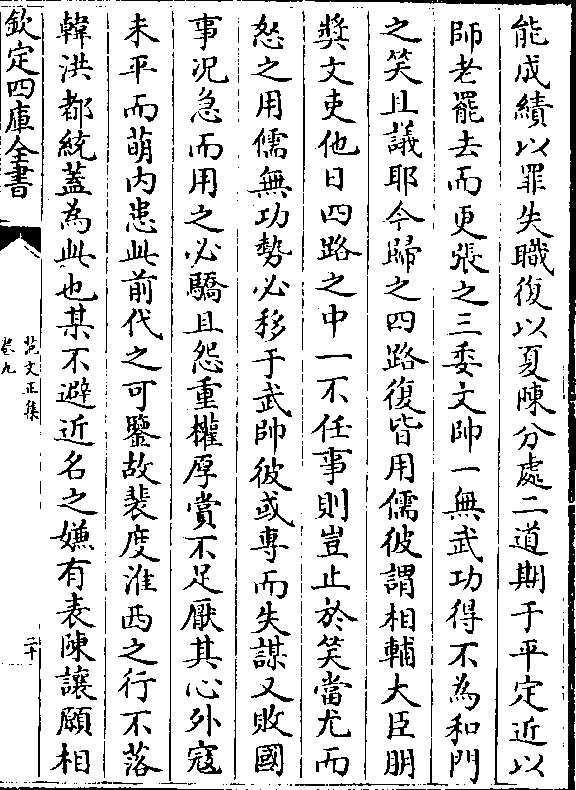 能成績以罪失職復以夏陳分處二道期于平定近以
師老罷去而更張之三委文帥一無武功得不為和門
之笑且議耶今歸之四路復皆用儒彼謂相輔大臣朋
奬文吏他日四路之中一不任事則豈止於笑當尤而
怒之用儒無功勢必移于武帥彼或專而失謀又敗國
事况急而用之必驕且怨重權厚賞不足厭其心外寇
未平而萌内患此前代之可鑒故裴度淮西之行不落
韓洪都統蓋為此也某不避近名之嫌有表陳讓願相
欽定四庫全書
范文正集
卷九
二十